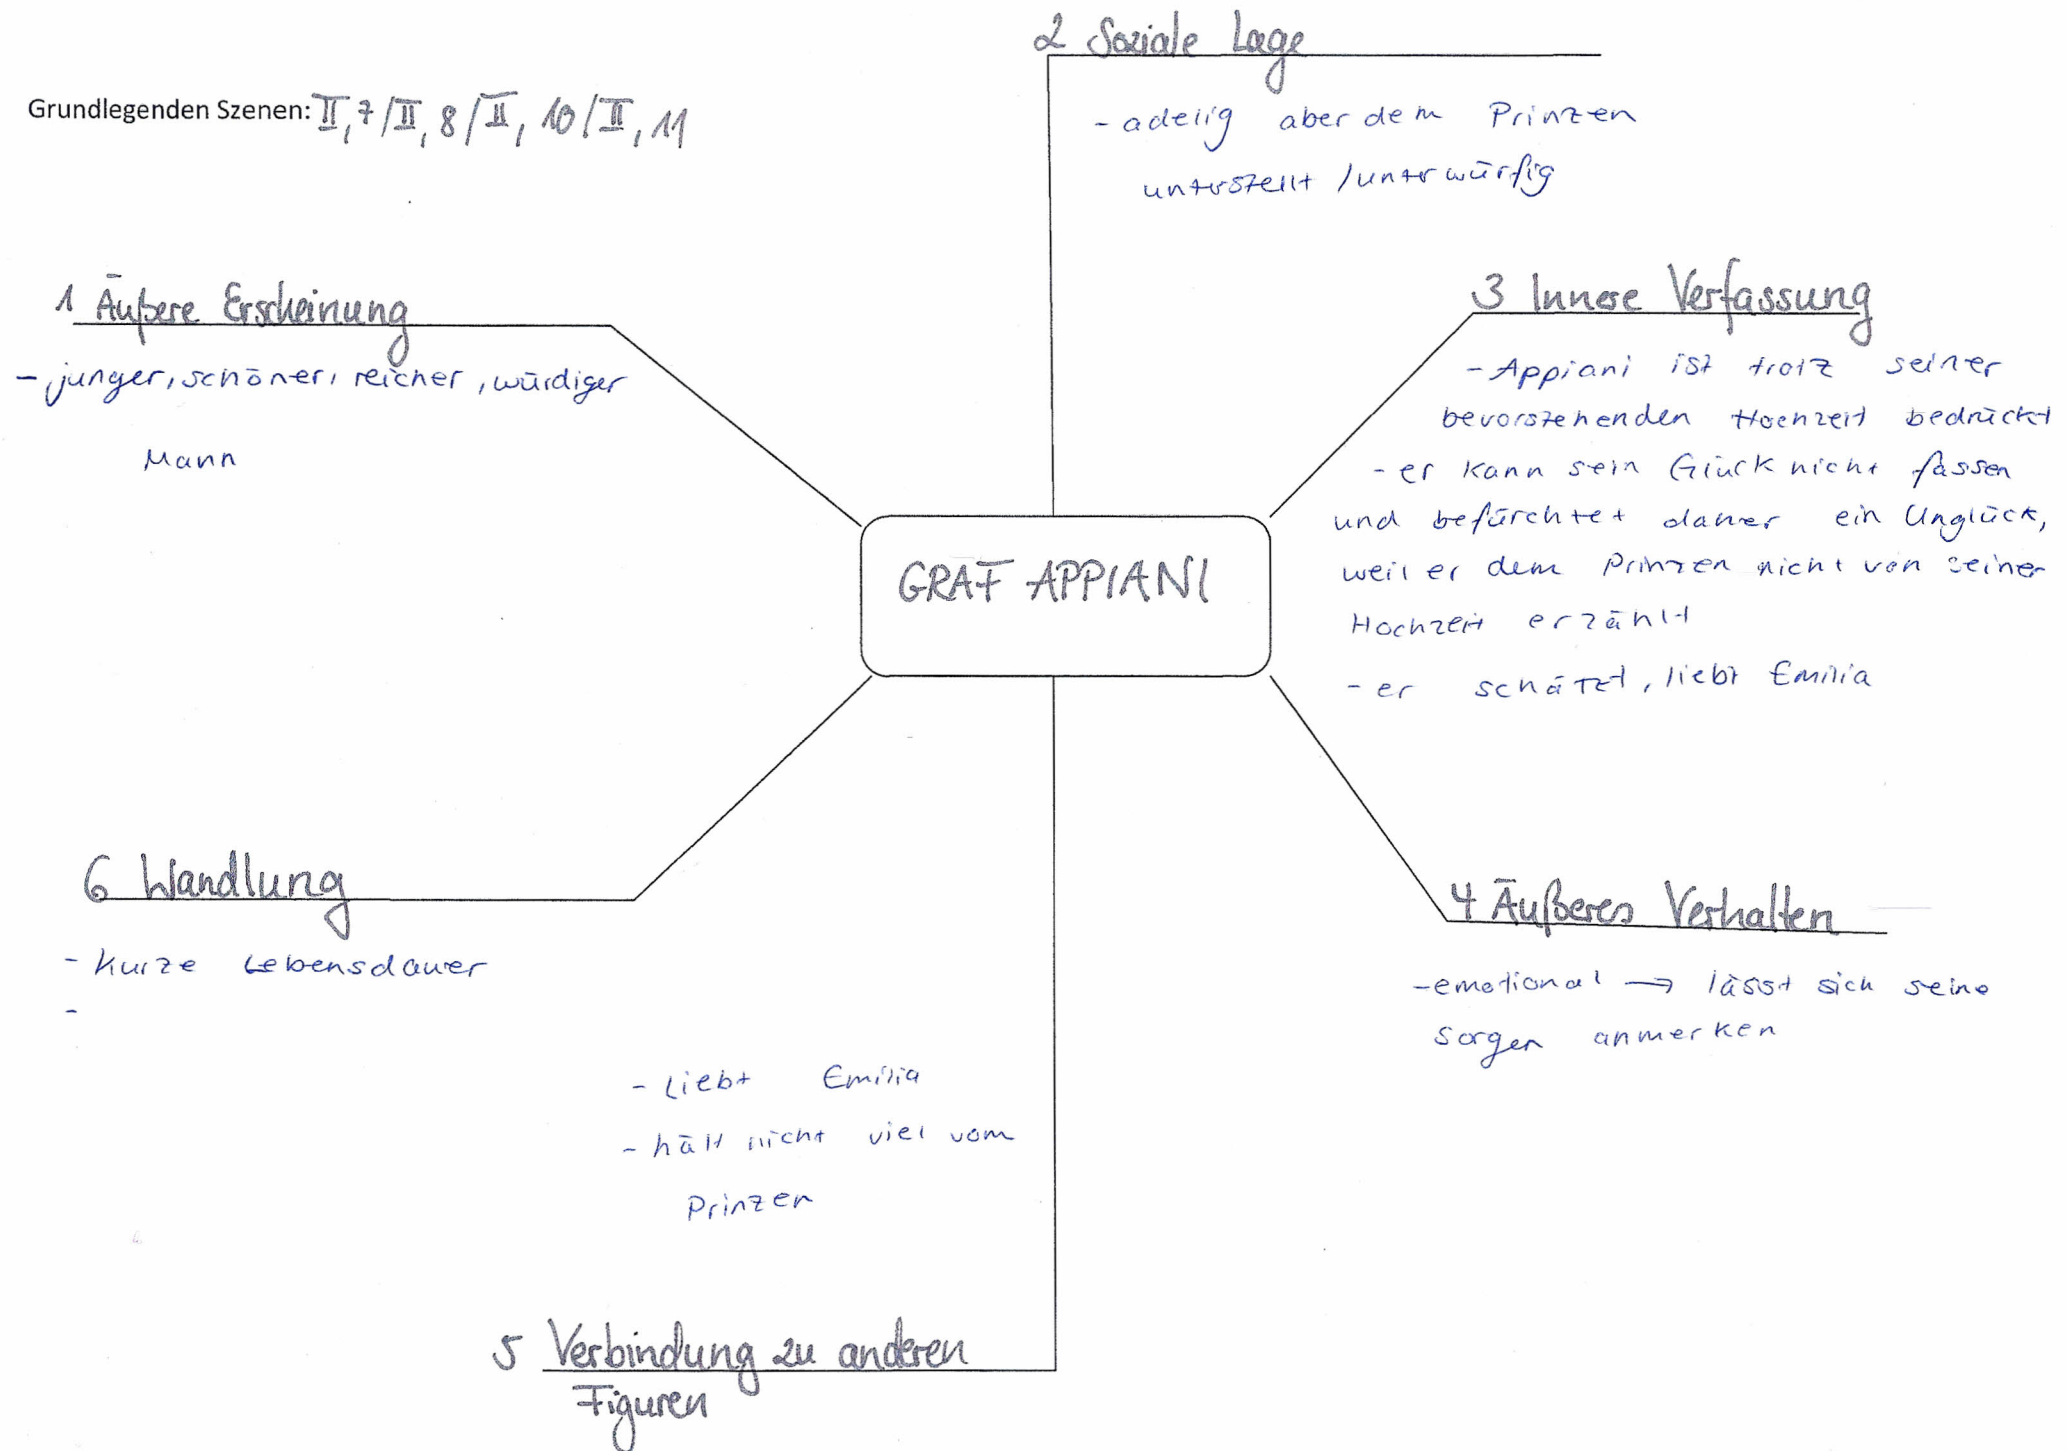 Grundlegenden Szenen: II, 7/II, 8/II, 10/II, 11
1 Äußere Erscheinung
- junger, schöner, reicher, würdiger
Mann
2 Soziale Lage
- adelig aber dem Prinzen
unterstellt / unterwürfig
3 Innere Verfassung
- Appiani ist trotz seiner
bevorstehenden Hochzeit bedrückt
- er kann sein Glück nicht fassen
und befürchtet daher ein Unglück,
weil er dem Prinzen nicht von seiner
Hochzeit erzählt
- er schätzt, liebt Emilia
GRAF APPIANI
4 Äußeres Verhalten
- emotional → lässt sich seine
Sorgen anmerken
5 Verbindung zu anderen
Figuren
- Liebt Emilia
- hält nicht viel vom
Prinzen
6 Wandlung
- Kurze Lebensdauer
-